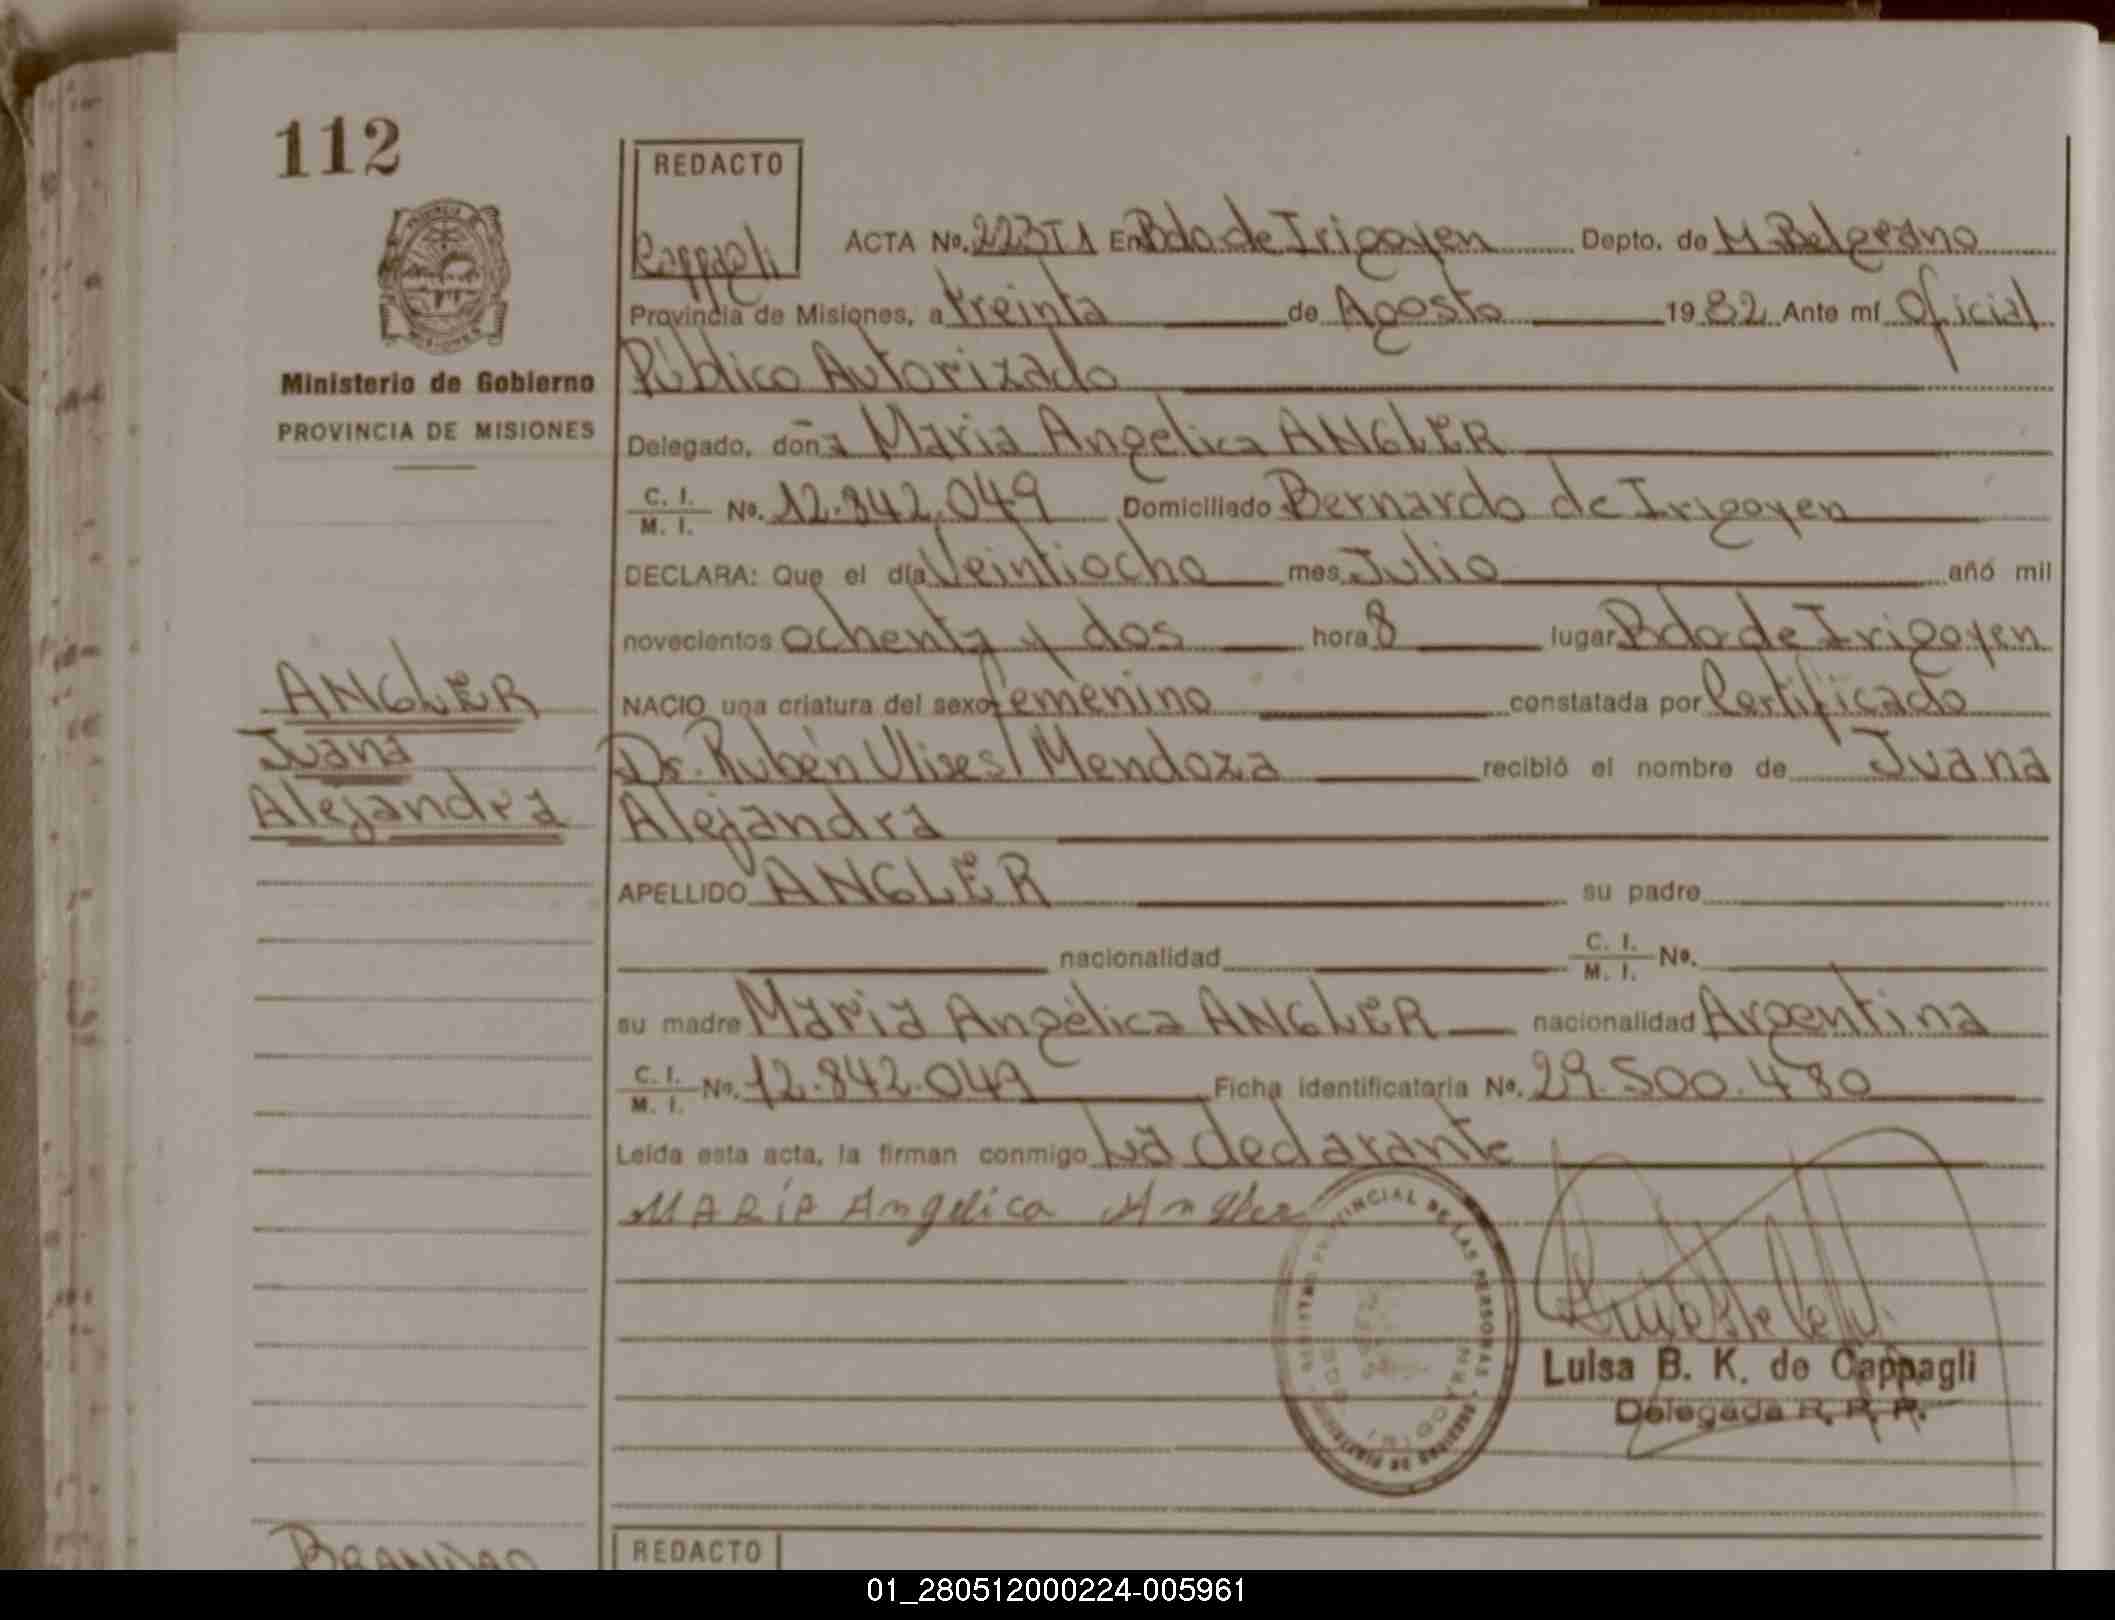 112
REDACTO
Cappagli
ACTA No. 223T1 En Bdo de Irigoyen Depto. de M. Belgrano
Provincia de Misiones, a treinta de Agosto 1982 Ante mí Oficial
Público Autorizado
Ministerio de Gobierno
PROVINCIA DE MISIONES
Delegado, doña Maria Angelica ANGLER
C. I.
M. I. No. 12.842.049 Domiciliado Bernardo de Irigoyen
DECLARA: Que el día Veintiocho mes Julio añó mil
novecientos ochenta y dos hora 8 lugar Bdo de Irigoyen
ANGLER
Juana
Alejandra
NACIO una criatura del sexo femenino constatada por Certificado
Dr. Rubén Ulises Mendoza recibió el nombre de Juana
Alejandra
APELLIDO ANGLER su padre
nacionalidad C. I.
M. I. No.
su madre Maria Angélica ANGLER nacionalidad Argentina
C. I.
M. I. No. 12.842.049 Ficha identificatoria No. 29.500.480
Leída esta acta, la firman conmigo La declarante
MARÍA Angelica Angler
PROVINCIAL DE LAS PERSONAS
Luisa B. K. de Cappagli
Delegada R. P. P.
REDACTO
01_280512000224-005961